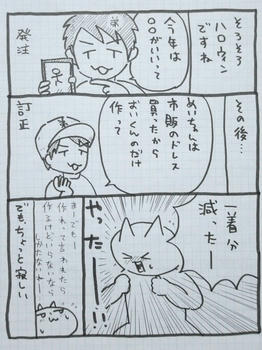 そろそろ
ハロウィン
ですね
今年は
〇〇がいいって
発注
その後…
めいちゃんは
市販のドレス
買ったから
おいくんのだけ
作って
訂正
一着分
減ったー
やったーー!!
まーでもー
作れって言われたら
作るけどいらないなら
しかたないわー
でも、ちょっと寂しい